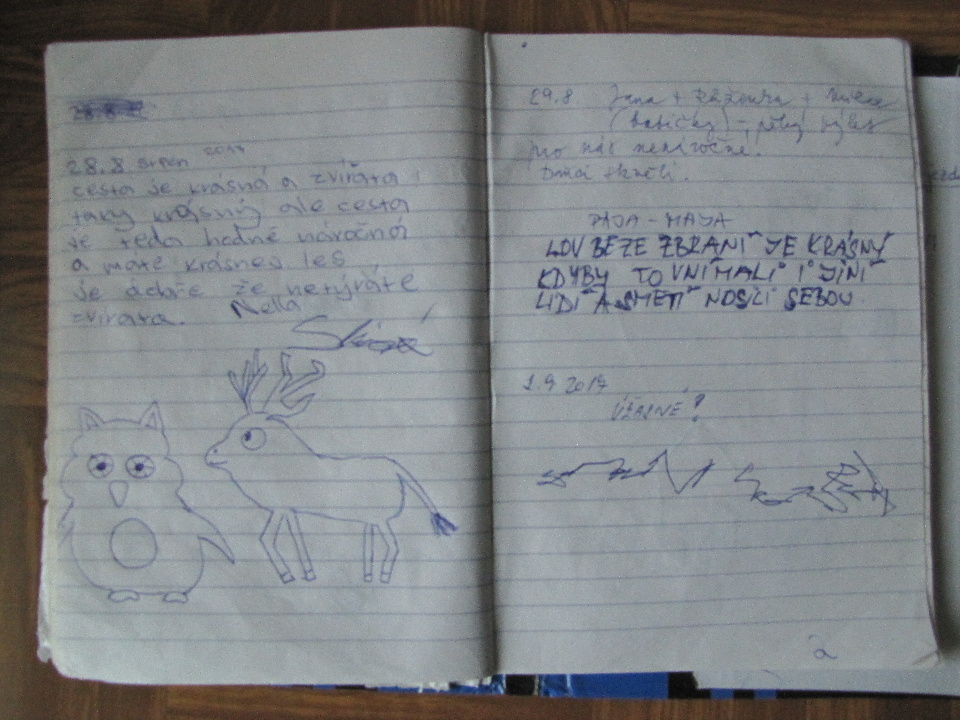 28.8 srpen 2017
cesta je krásná a zvířata
taky krásný ale cesta
je teda hodně náročná
a máte krásnej les
je dobře že netýráte
zvířata. Nella
29.8 Jana + Růženka +
(babičky) - pěkný výlet
pro nás nenáročné.
PÁJA - MAJA
LOV BEZE ZBRANÍ JE KRÁSNÝ
KDYBY TO VNÍMALI I JINÍ
LIDI A SMETÍ NOSILI SEBOU
1.9 2017
ÚŽASNÉ!